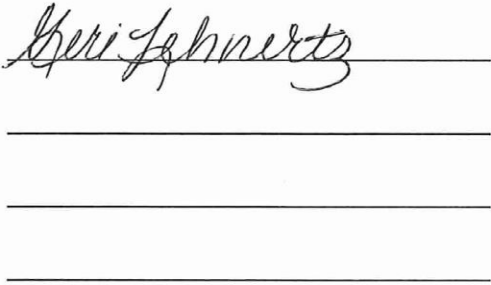 Geri Lehnertz